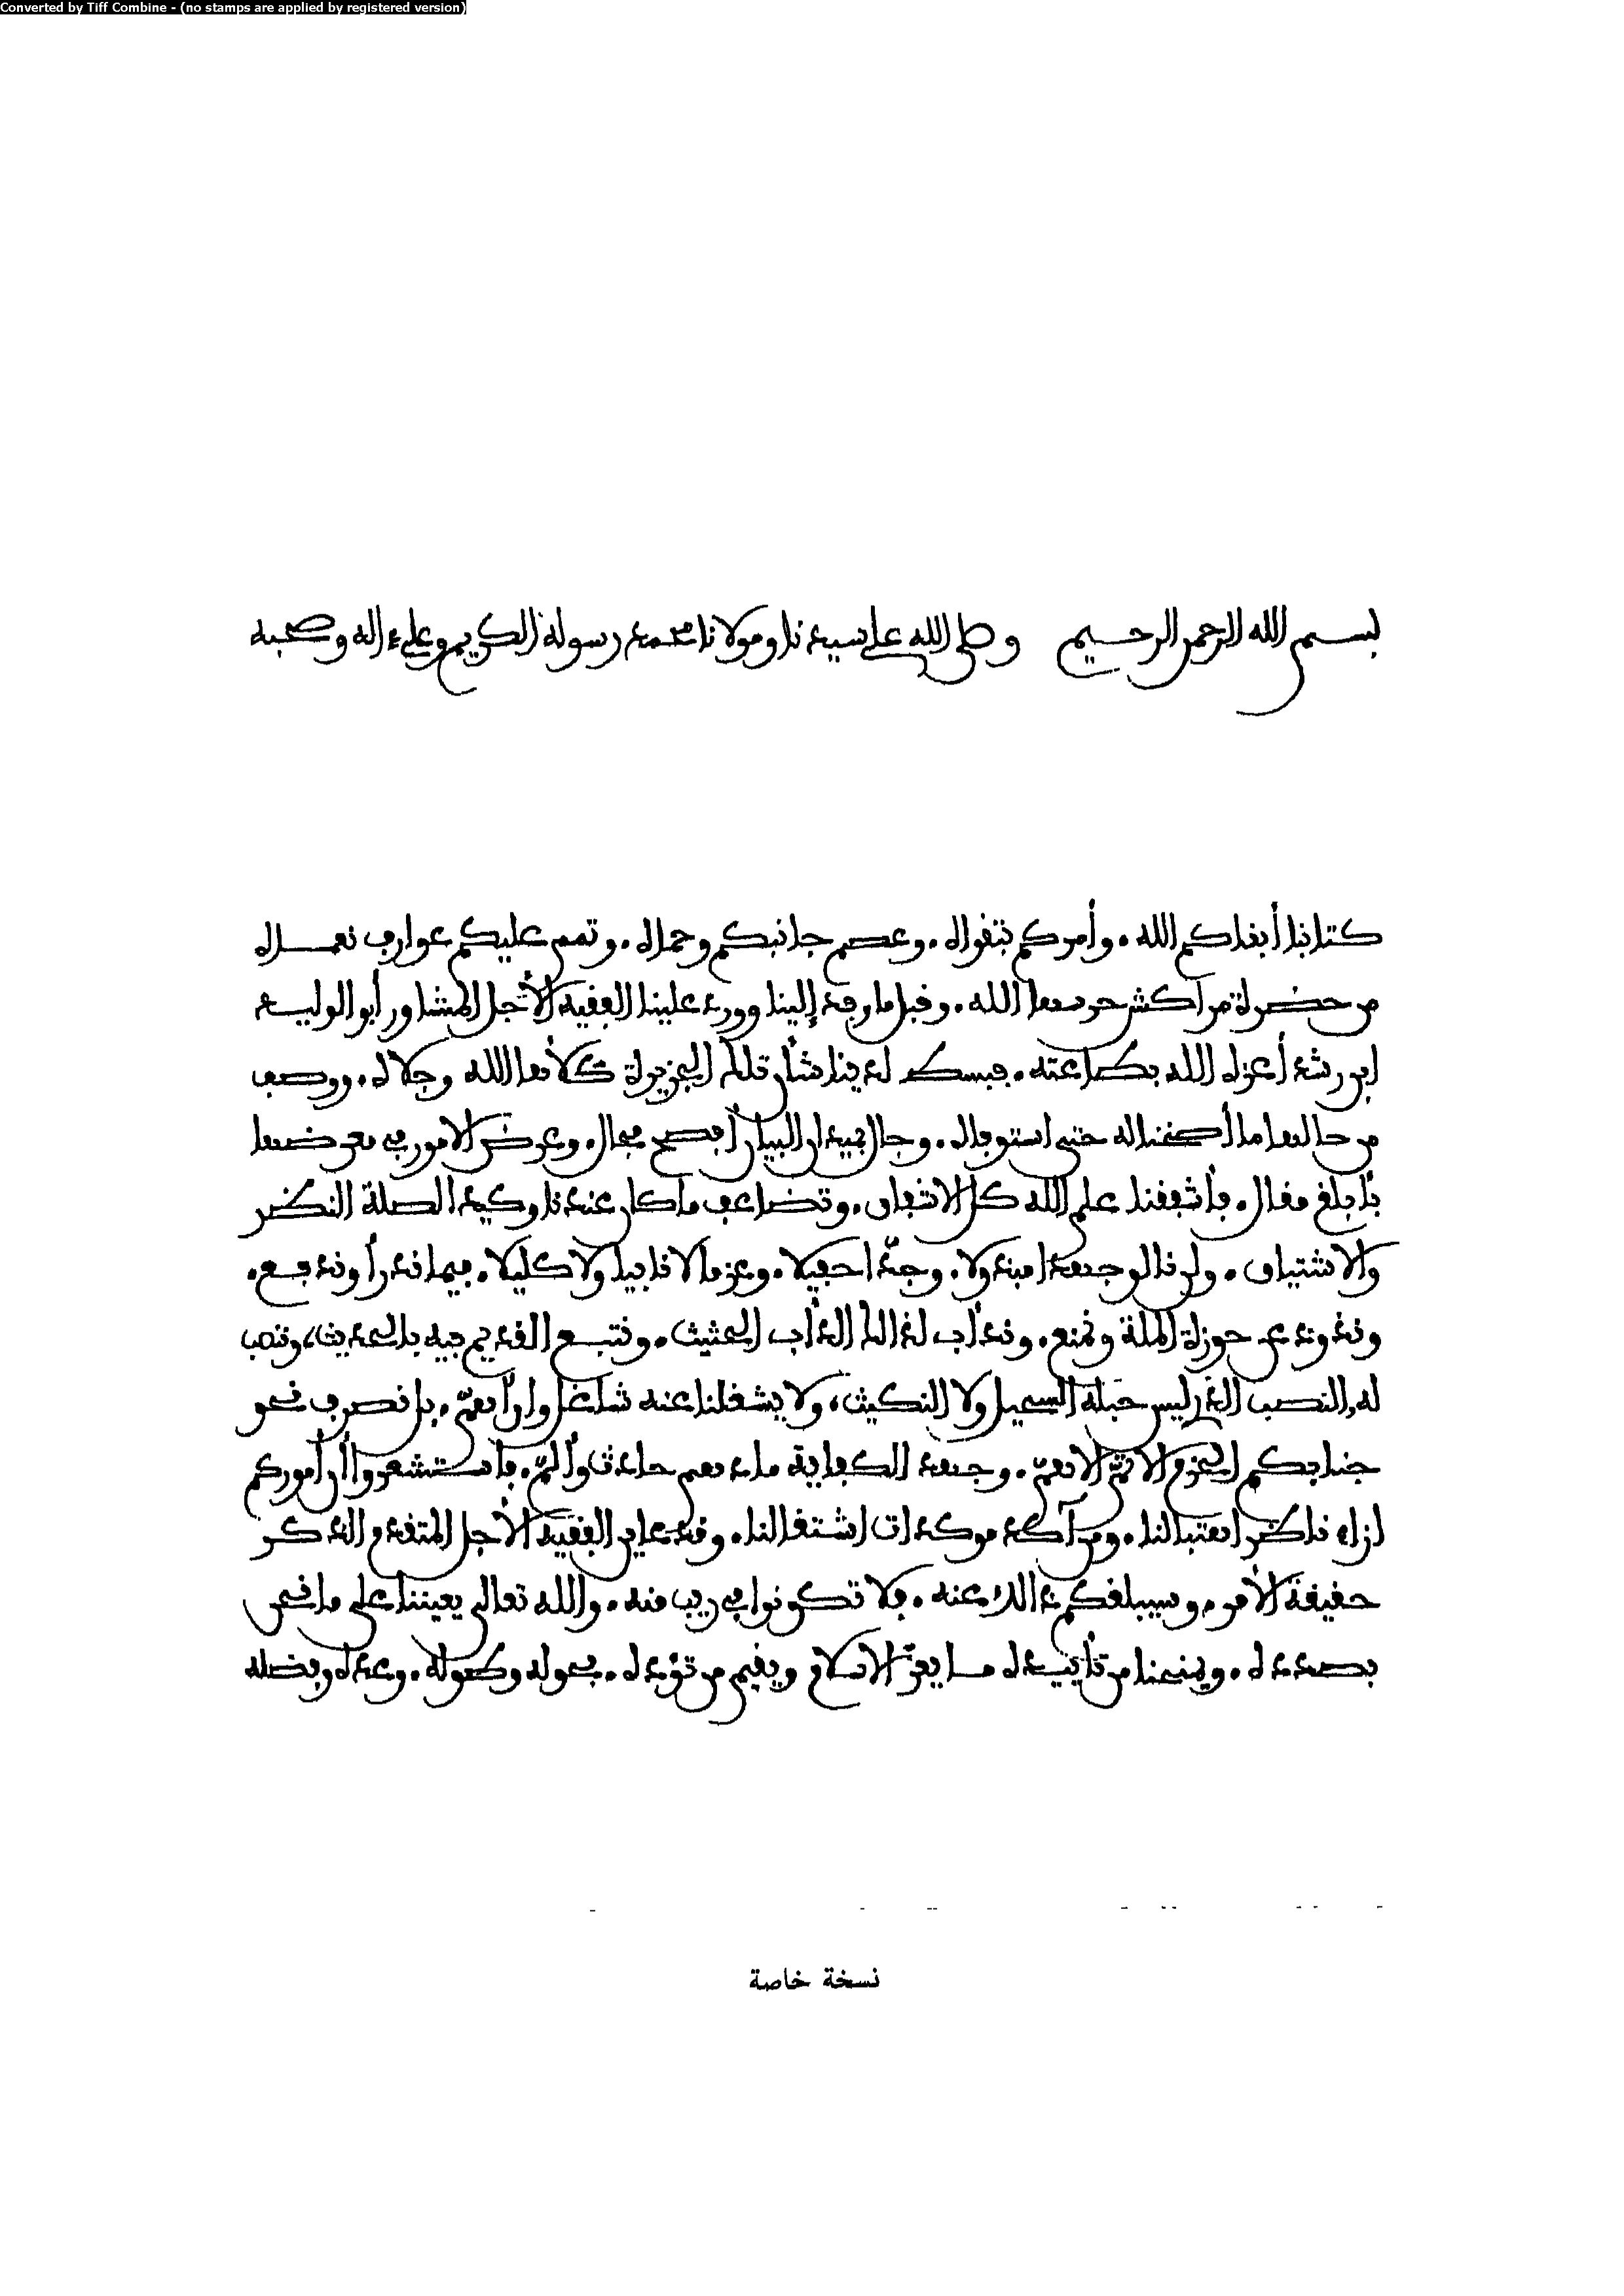 Converted by Tiff Combine - (no stamps are applied by registered version)
بسم الله الرحمن الرحيم وصلى الله على سيدنا ومولانا محمد رسوله الكريم وعلى اله وصحبه
كتابنا أبقاكم الله، وأمركم بتقواه، وعصم جانبكم وحماه، وتمم عليكم عوارف نعماه
من حضرة مراكش حرسها الله، وقبل ما وفد إلينا وورد علينا الفقيه الأجل المشاور أبو الوليد
ابن رشد أعزه الله بطاعته، فبسط لدينا شأن تلك الجزيرة كلأها الله وجلاه، ووصف
من حالها ما أصخنا له حتى استوفاه، وجال بميدان البيان أفصح مجال، وعرض الامور في معرضها
بأبلغ مقال، فأشفقنا علم الله كل الاشفاق، وتضاعف ما كان عندنا وكيد الصلة النظر
والاشتياق، ولن نالو جهدا مبذولا، وجدا حفيلا، وعزما لا نابيا ولا كليلا، فيما ندرأ وندفع،
ونذود عن حوزة الملة ونمنع، وندأب لذلك الدأب الحثيث، ونتبع القديم فيه بالحديث، وننصب
له النصب الذي ليس حبله السحيل ولا النكيث، ولا يشغلنا عنه شاغل وان أهم، بل نصرف نحو
جنابكم الحزم الاتم الاهم، وجهد الكفاية ما دهم حادث وألم، فاستشعروا أن أموركم
ازاء ناظر اهتبالنا، ومن آكد موكدات اشتغالنا، وقد عاين الفقيه الأجل المتقدم الذكر
حقيقة الأمر، وسيبلغكم ذلك عنه، فلا تكونوا في ريب منه، والله تعالى يعيننا على ما نحن
بصدده، ويمنحنا من تأييده ما يعز الاسلام ويقيم من تؤده، بحوله وطوله، وعدله وبفضله
نسخة خاصة